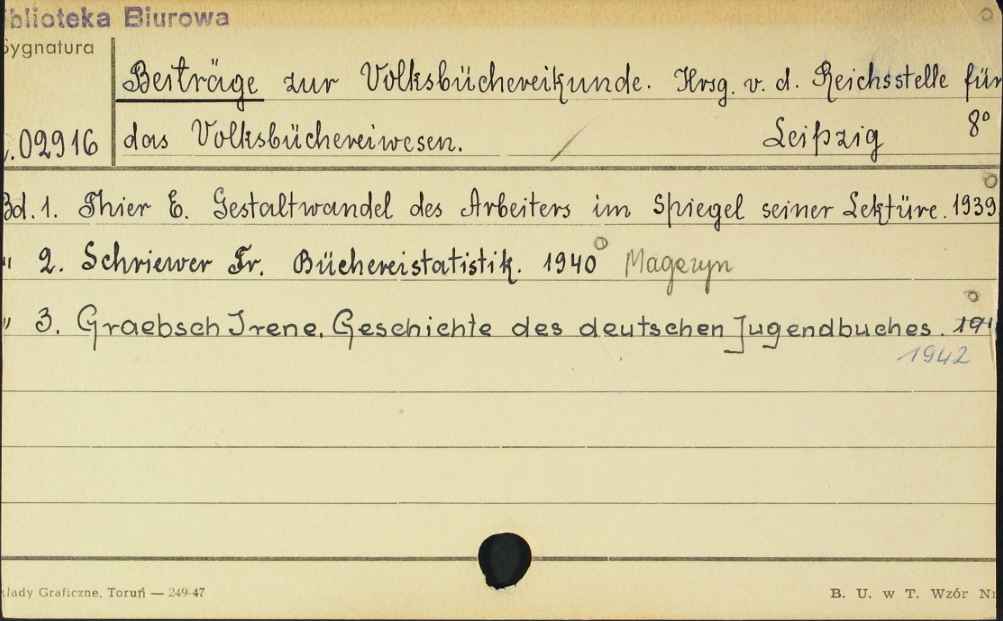 blioteka Biurowa
Sygnatura
Beiträge zur Volksbüchereikunde. Hrsg. v. d. Reichsstelle für
.02916 das Volksbüchereiwesen. Leipzig 8°
Bd. 1. Thier E. Gestaltwandel des Arbeiters im Spiegel seiner Lektüre. 1939
" 2. Schriewer Fr. Büchereistatistik. 1940 Magazyn
" 3. Graebsch Irene. Geschichte des deutschen Jugendbuches. 194
1942
łady Graficzne, Toruń — 249-47
B. U. w T. Wzór Nr